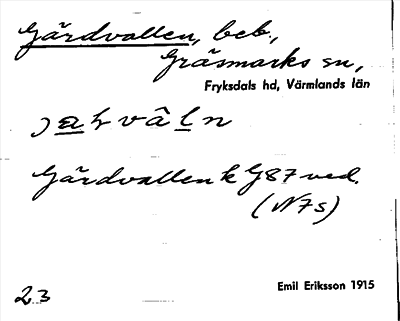 Gårdvallen, beb.,
Gräsmarks sn,
Fryksdals hd, Värmlands län
Gårdvallen k G87 ved.
(N7s)
23
Emil Eriksson 1915